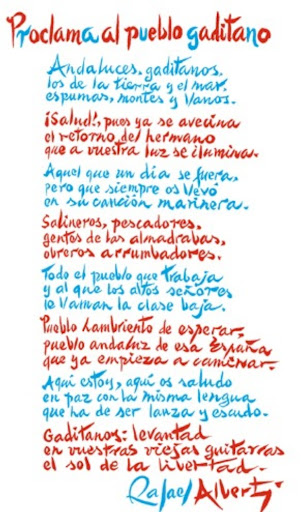 Proclama al pueblo gaditano
Andaluces, gaditanos,
los de la tierra y el mar,
espumas, montes y llanos.
¡Salud!, pues ya se avecina
el retorno del hermano
que a vuestra luz se ilumina.
Aquel que un día se fuera,
pero que siempre os llevó
en su canción marinera.
Salineros, pescadores,
gentes de las almadrabas,
obreros arrumbadores.
Todo el pueblo que trabaja
y al que los altos señores
le llaman la clase baja.
Pueblo hambriento de esperar,
pueblo andaluz de esa España
que ya empieza a caminar.
Aquí estoy, aquí os saludo
en paz con la misma lengua
que ha de ser lanza y escudo.
Gaditanos: levantad
en vuestras viejas guitarras
el sol de la libertad.
Rafael Alberti